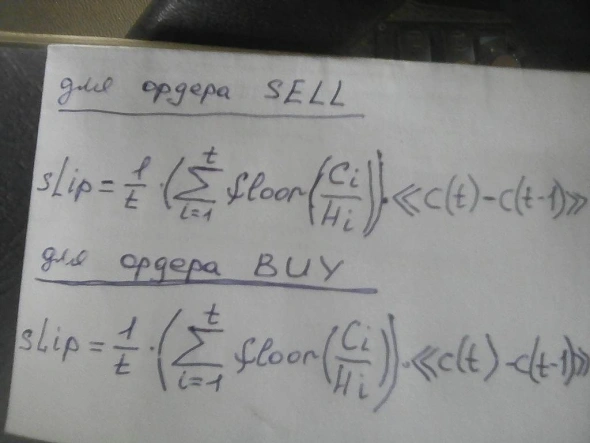 для ордера SELL
slip = 1/t · (∑ i=1 t floor(Ci/Hi)) · ≪c(t) - c(t-1)≫
для ордера BUY
slip = 1/t · (∑ i=1 t floor(Ci/Hi)) · ≪c(t) - c(t-1)≫